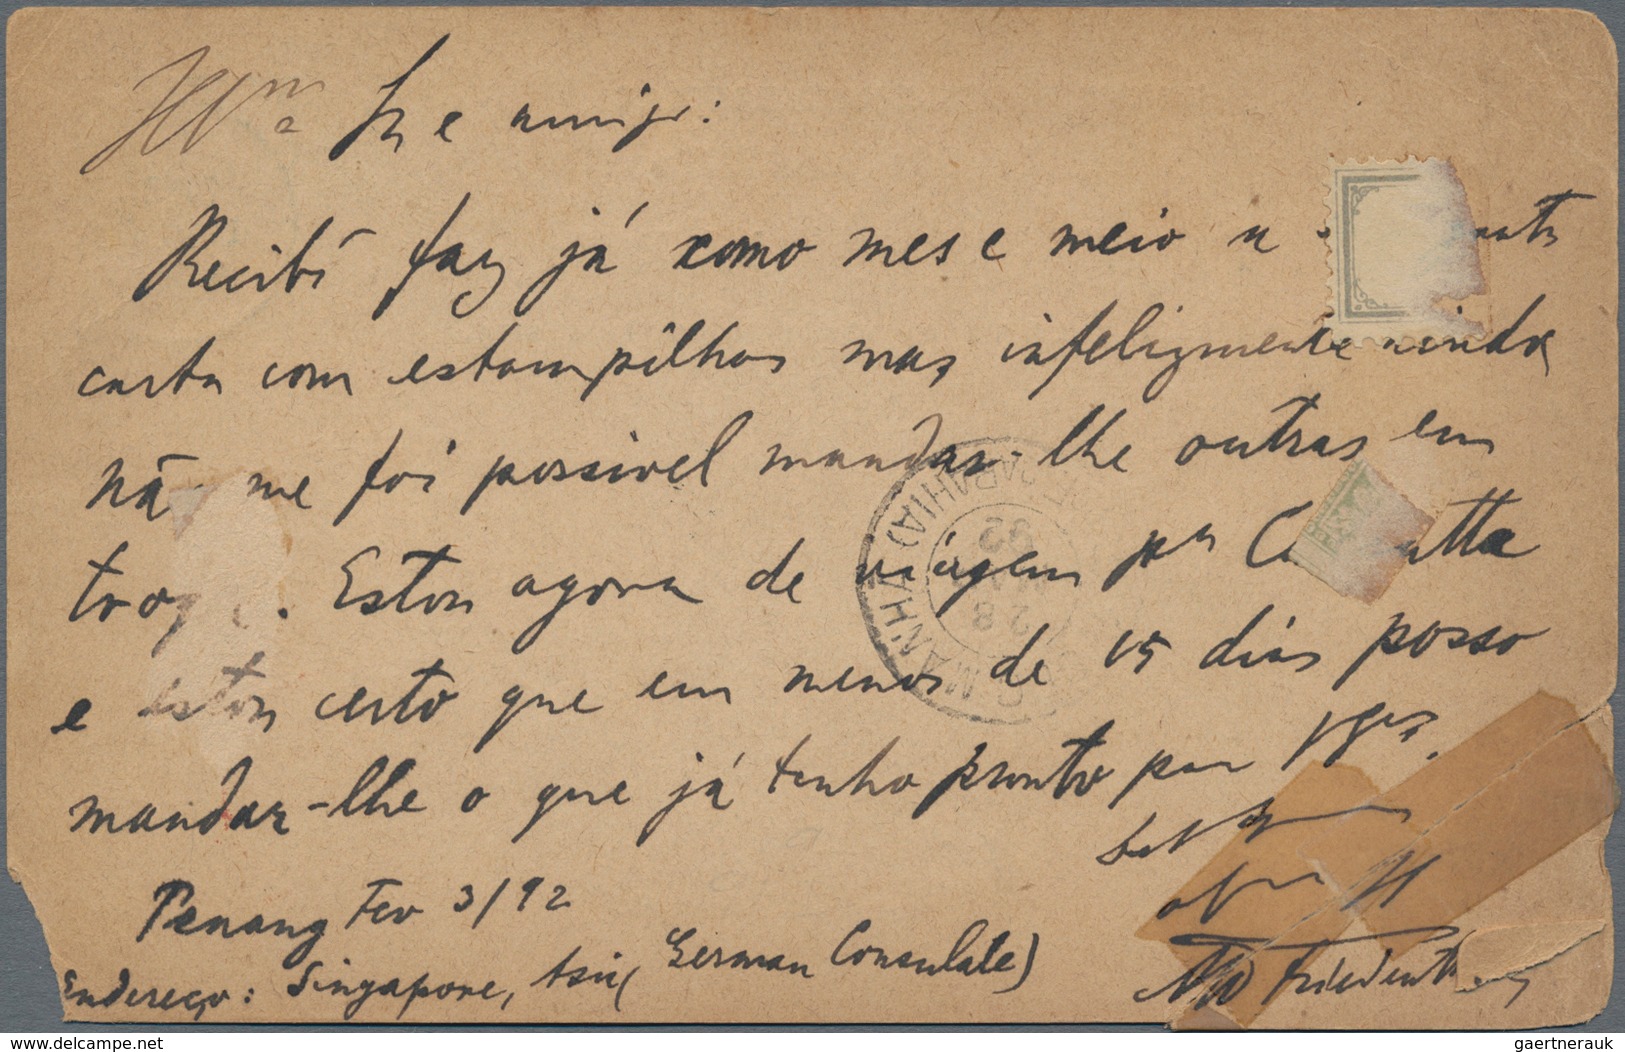 Sr e amigo:
Recibí faz já como mes e meio a
carta com estampilhas mas infelizmente ainda
não me foi possivel mandar-lhe outras em
troca. Estou agora de viágem por Calcutta
e estou certo que em menos de 15 dias posso
mandar-lhe o que já tenho pronto por
Penang Fev 3/92
Endereço: Singapore, Asia (German Consulate)
(BAHIA)
92
28
gaertnerauk
www.delcampe.net